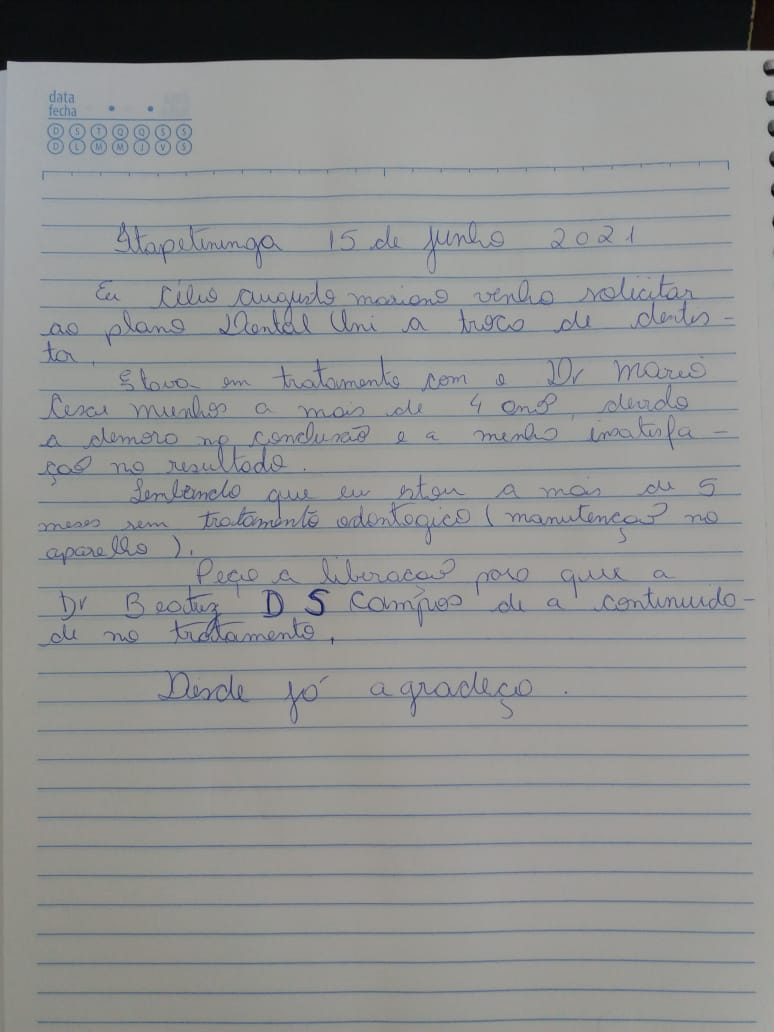 data
fecha
D S T Q Q S S
D L M M J V S
Itapetininga 15 de junho 2021
Eu Célio augusto mariano venho solicitar
ao plano Dental Uni a troca de dentis-
ta.
Estava em tratamento com o Dr Mario
Cesar munhos a mais de 4 anos, devido
a demora na conclusão e a minha insatisfa-
ção no resultado.
Lembrando que eu estou a mais de 5
meses sem tratamento odontogico (manutenção no
aparelho).
Peço a liberação para que a
Dr Beatriz D S Campos de a continuida-
de no tratamento.
Desde já agradeço.